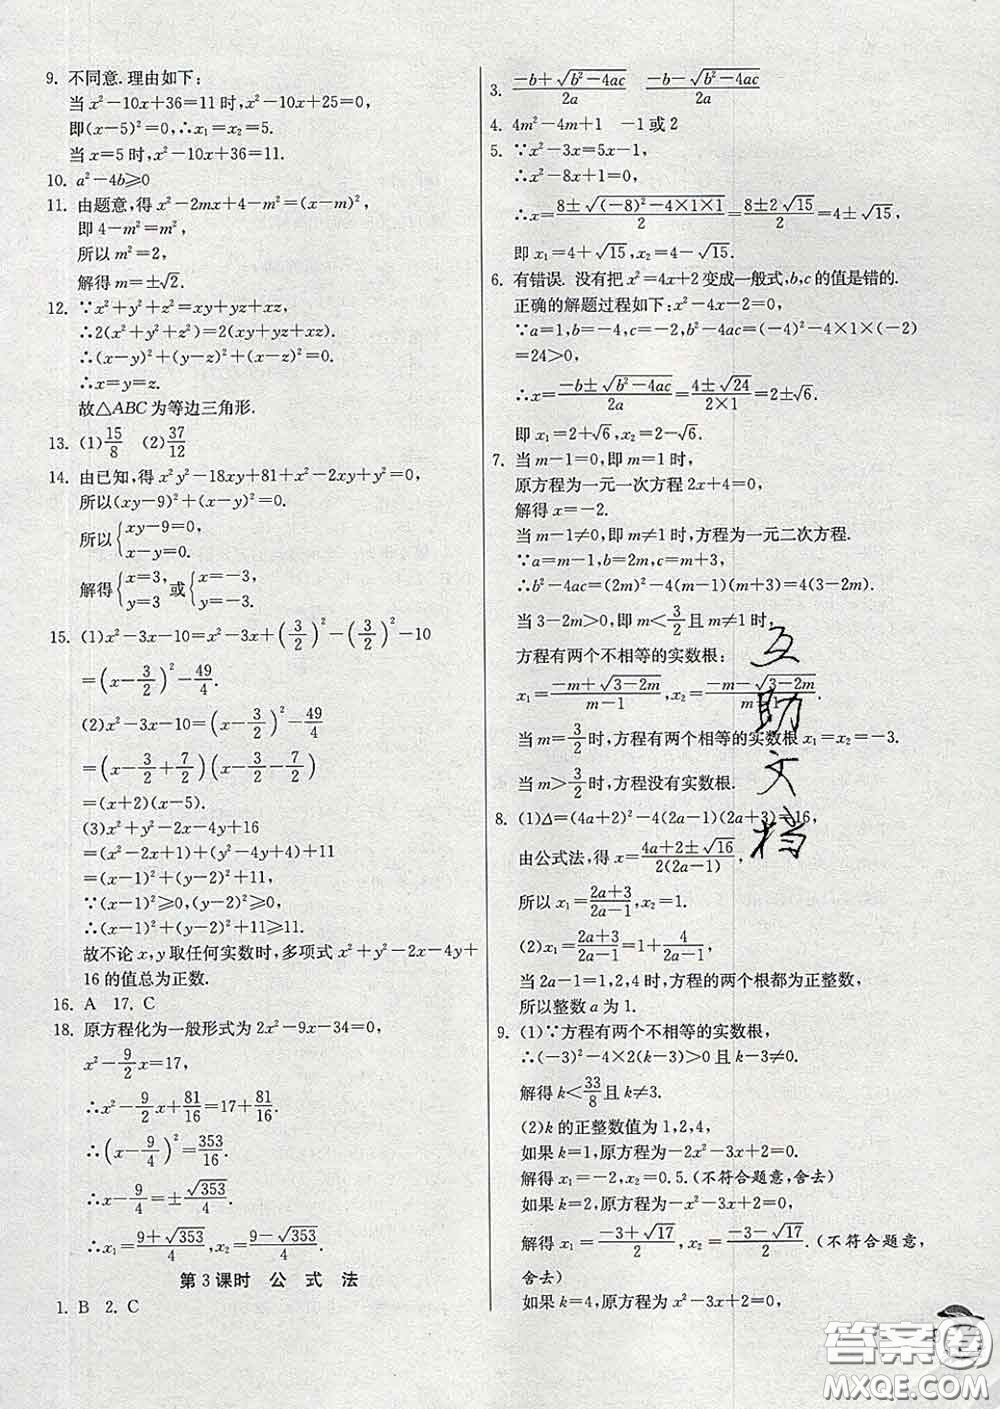 9. 不同意.理由如下:
当 x²－10x＋36＝11 时,x²－10x＋25＝0,
即(x－5)²＝0,∴x₁＝x₂＝5.
当 x＝5 时,x²－10x＋36＝11.
10. a²－4b≥0
11. 由题意,得 x²－2mx＋4－m²＝(x－m)²,
即 4－m²＝m²,
所以 m²＝2,
解得 m＝±√2.
12. ∵x²＋y²＋z²＝xy＋yz＋xz,
∴2(x²＋y²＋z²)＝2(xy＋yz＋xz).
∴(x－y)²＋(y－z)²＋(x－z)²＝0.
∴x＝y＝z.
故△ABC 为等边三角形.
13. (1)15/8 (2)37/12
14. 由已知,得 x²y²－18xy＋81＋x²－2xy＋y²＝0,
所以(xy－9)²＋(x－y)²＝0.
所以{xy－9＝0, x－y＝0.
解得{x＝3, y＝3 或{x＝－3, y＝－3.
15. (1)x²－3x－10＝x²－3x＋(3/2)²－(3/2)²－10
＝(x－3/2)²－49/4.
(2)x²－3x－10＝(x－3/2)²－49/4
＝(x－3/2＋7/2)(x－3/2－7/2)
＝(x＋2)(x－5).
(3)x²＋y²－2x－4y＋16
＝(x²－2x＋1)＋(y²－4y＋4)＋11
＝(x－1)²＋(y－2)²＋11,
∵(x－1)²≥0,(y－2)²≥0,
∴(x－1)²＋(y－2)²＋11≥11.
故不论 x,y 取任何实数时,多项式 x²＋y²－2x－4y＋
16 的值总为正数.
16. A 17. C
18. 原方程化为一般形式为 2x²－9x－34＝0,
x²－9/2x＝17,
∴x²－9/2x＋81/16＝17＋81/16.
∴(x－9/4)²＝353/16.
∴x－9/4＝±√353/4.
∴x₁＝(9＋√353)/4,x₂＝(9－√353)/4.
第 3 课时 公 式 法
1. B 2. C
3. (－b＋√(b²－4ac))/2a (－b－√(b²－4ac))/2a
4. 4m²－4m＋1 －1 或 2
5. ∵x²－3x＝5x－1,
∴x²－8x＋1＝0,
∴x＝(8±√((－8)²－4×1×1))/2＝(8±2√15)/2＝4±√15,
即 x₁＝4＋√15,x₂＝4－√15.
6. 有错误. 没有把 x²＝4x＋2 变成一般式,b,c 的值是错的.
正确的解题过程如下:x²－4x－2＝0,
∵a＝1,b＝－4,c＝－2,b²－4ac＝(－4)²－4×1×(－2)
＝24>0,
∴x＝(－b±√(b²－4ac))/2a＝(4±√24)/(2×1).
即 x₁＝2＋√6,x₂＝2－√6.
7. 当 m－1＝0,即 m＝1 时,
原方程为一元一次方程 2x＋4＝0,
解得 x＝－2.
当 m－1≠0,即 m≠1 时,方程为一元二次方程.
∵a＝m－1,b＝2m,c＝m＋3,
∴b²－4ac＝(2m)²－4(m－1)(m＋3)＝4(3－2m).
当 3－2m>0,即 m<3/2 且 m≠1 时,
方程有两个不相等的实数根:
x₁＝(－m＋√(3－2m))/(m－1),x₂＝(－m－√(3－2m))/(m－1).
当 m＝3/2 时,方程有两个相等的实数根 x₁＝x₂＝－3.
当 m>3/2 时,方程没有实数根.
8. (1)Δ＝(4a＋2)²－4(2a－1)(2a＋3)＝16,
由公式法,得 x＝(4a＋2±√16)/(2(2a－1)),
所以 x₁＝(2a＋3)/(2a－1),x₂＝1.
(2)x₁＝(2a＋3)/(2a－1)＝1＋4/(2a－1),
当 2a－1＝1,2,4 时,方程的两个根都为正整数,
所以整数 a 为 1.
9. (1)∵方程有两个不相等的实数根,
∴(－3)²－4×2(k－3)>0 且 k－3≠0.
解得 k<33/8 且 k≠3.
(2)k 的正整数值为 1,2,4,
如果 k＝1,原方程为－2x²－3x＋2＝0.
解得 x₁＝－2,x₂＝0.5.(不符合题意,舍去)
如果 k＝2,原方程为－x²－3x＋2＝0,
解得 x₁＝(－3＋√17)/2,x₂＝(－3－√17)/2.(不符合题意,
舍去)
如果 k＝4,原方程为 x²－3x＋2＝0,
互助文档
答案卷
MXQE.COM